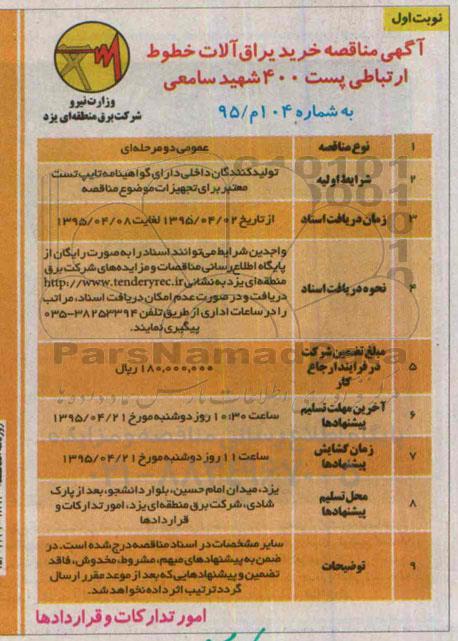 نوبت اول
آگهی مناقصه خرید یراق آلات خطوط
ارتباطی پست ۴۰۰ شهید سامعی
به شماره ۱۰۴م/۹۵
وزارت نیرو
شرکت برق منطقه‌ای یزد
۱ نوع مناقصه عمومی دو مرحله‌ای
۲ شرایط اولیه تولیدکنندگان داخلی دارای گواهینامه تایپ تست
معتبر برای تجهیزات موضوع مناقصه
۳ زمان دریافت اسناد از تاریخ ۱۳۹۵/۰۴/۰۲ لغایت ۱۳۹۵/۰۴/۰۸
۴ نحوه دریافت اسناد واجدین شرایط می‌توانند اسناد را به صورت رایگان از
پایگاه اطلاع رسانی مناقصات و مزایده‌های شرکت برق
منطقه‌ای یزد به نشانی http://www.tenderyrec.ir
دریافت و در صورت عدم امکان دریافت اسناد، مراتب
را در ساعات اداری از طریق تلفن ۳۸۲۵۳۳۹۴-۰۳۵
پیگیری نمایند.
۵ مبلغ تضمین شرکت
در فرایند ارجاع
کار
۱۸۰,۰۰۰,۰۰۰ ریال
۶ آخرین مهلت تسلیم
پیشنهادها
ساعت ۱۰:۳۰ روز دوشنبه مورخ ۱۳۹۵/۰۴/۲۱
۷ زمان گشایش
پیشنهادها
ساعت ۱۱ روز دوشنبه مورخ ۱۳۹۵/۰۴/۲۱
۸ محل تسلیم
پیشنهادها
یزد، میدان امام حسین، بلوار دانشجو، بعد از پارک
شادی، شرکت برق منطقه‌ای یزد، امور تدارکات و
قراردادها
۹ توضیحات سایر مشخصات در اسناد مناقصه درج شده است. در
ضمن به پیشنهادهای مبهم، مشروط، مخدوش، فاقد
تضمین و پیشنهادهایی که بعد از موعد مقرر ارسال
گردد ترتیب اثر داده نخواهد شد.
امور تدارکات و قراردادها
ParsNamadData